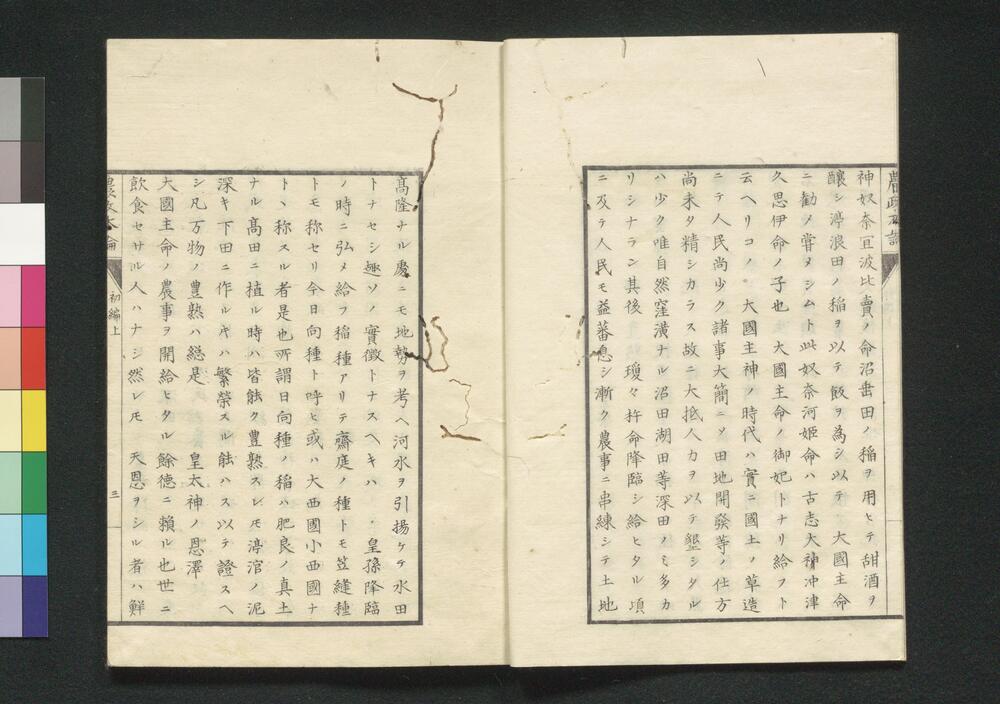 農政本論
神奴奈冝波比賣ノ命沼畫田ノ稲ヲ用ヒテ甜酒ヲ
釀シ渟浪田ノ稲ヲ以テ飯ヲ為シ以テ 大國主命
ニ勸メ嘗ヌシムト此奴奈河姫命ハ古志大神沖津
久思伊命ノ子也 大國主命ノ御妃トナリ給フト
云ヘリコノ 大國主神ノ時代ハ實ニ國土ノ草造
ニテ人民尚少ク諸事大簡ニソ田地開發等ノ仕方
尚未タ精シカラス故ニ大抵人力ヲ以テ墾シタル
ハ少ク唯自然窪潢ナル沼田湖田等深田ノミ多カ
リシナラン其後 瓊々杵命降臨シ給ヒタル頃
ニ及テ人民モ益蕃息シ漸ク農事ニ串練シテ土地
髙隆ナル處ニモ地勢ヲ考ヘ河水ヲ引揚ケテ水田
トナセシ趣ソノ實徴トナスヘキハ 皇孫降臨
ノ時ニ弘メ給フ稲種アリテ齋庭ノ種トモ笠縫種
トモ称セリ今日向種ト呼ヒ或ハ大西國小西國ナ
トヽ称スル者是也所謂日向種ノ稲ハ肥良ノ真土
ナル髙田ニ植ル時ハ皆能ク豊熟スレモ渟涫ノ泥
深キ下田ニ作ルキハ繁榮スル能ハス以テ證スヘ
シ凡万物ノ豊熟ハ縂是 皇太神ノ恩澤
大國主命ノ農事ヲ開給ヒタル餘徳ニ頼ル也世ニ
飲食セサル人ハナシ然レモ 天恩ヲシル者ハ鮮
農政本論 初編上 三